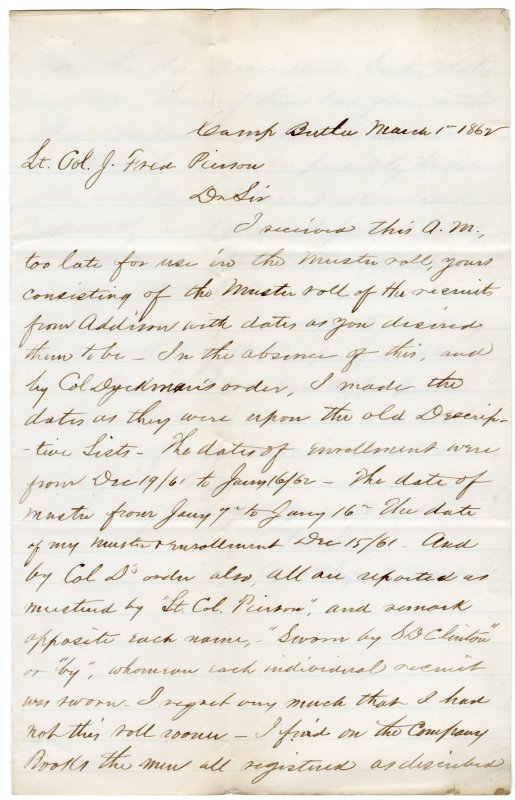 Camp Butler March 1st 1862
Lt. Col. J. Fred Pierson
Dr Sir
I received this A.M.,
too late for use in the Muster roll, yours
consisting of the Muster roll of the recruits
from Addison with dates as you desired
them to be – In the absence of this, and
by Col Dyckman's order, I made the
dates as they were upon the old Descrip-
-tive Lists – The dates of enrollment were
from Dec 19/61 to Jany 16/62 – The date of
muster from Jany 7th to Jany 16th The date
of my muster & enrollment Dec 15/61 – And
by Col D's order also, all are reported as
mustered by "Lt. Col. Pierson", and remark
opposite each name, – "Sworn by S D Clinton"
or "by", whomever each individual recruit
was sworn – I regret very much that I had
not this roll sooner – I find on the Company
Books the men all registered as described